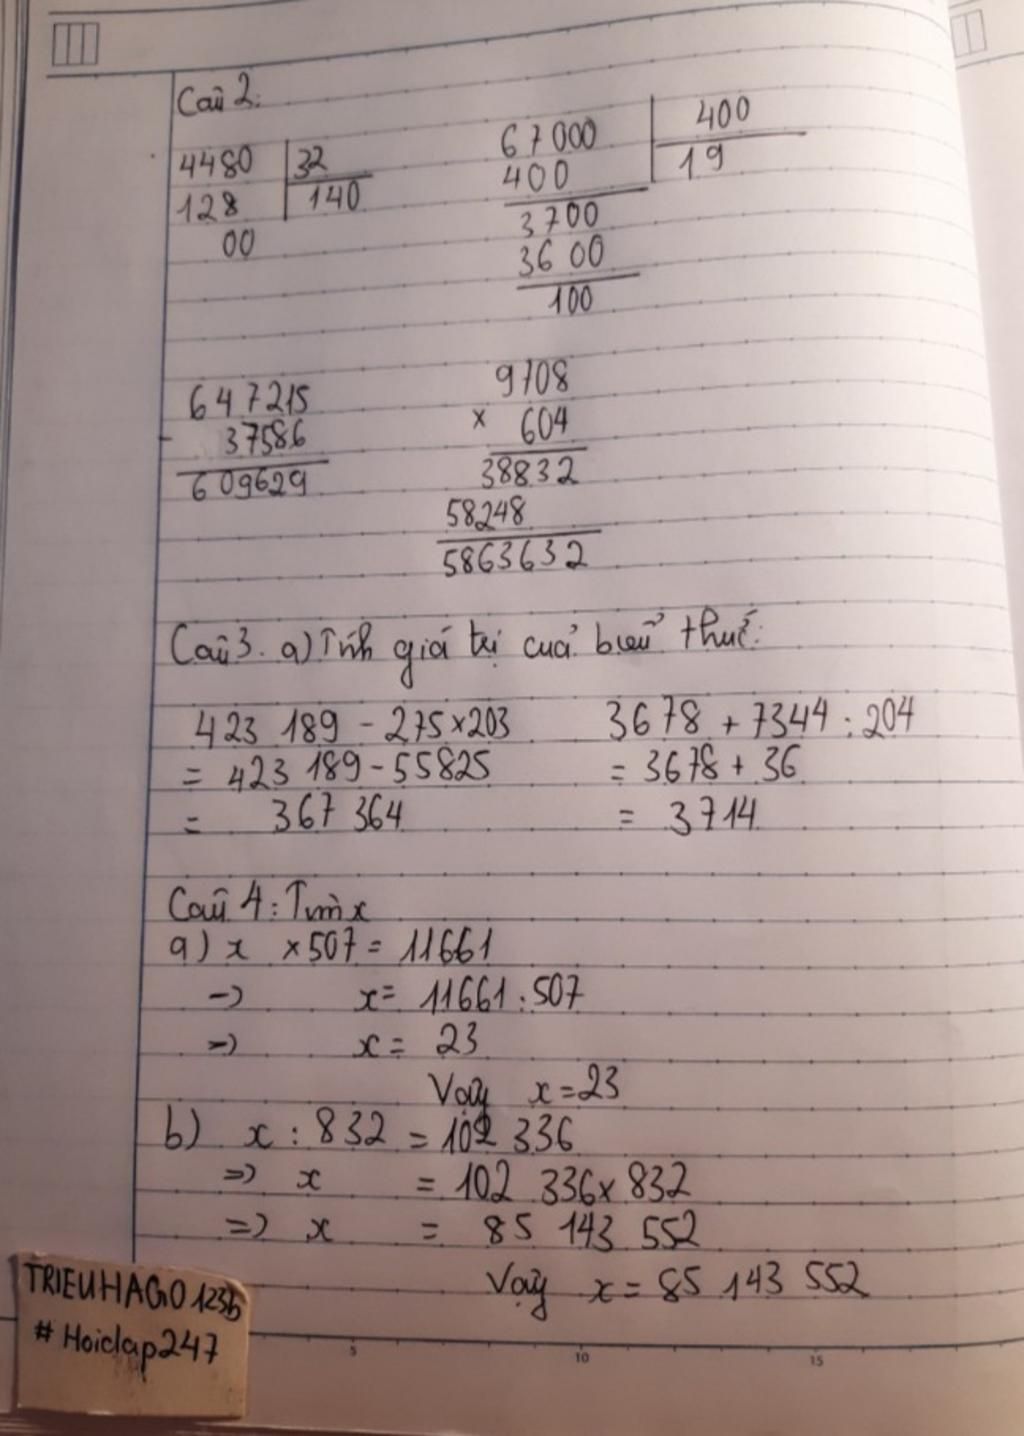 Câu 2:
4480 32
128 140
00
67000 400
400 19
3700
3600
100
647215
- 37586
609629
9708
x 604
38832
58248
5863632
Câu 3. a) Tính giá trị của biểu thức:
423 189 - 275 x 203
= 423 189 - 55825
= 367 364
3678 + 7344 : 204
= 3678 + 36
= 3714
Câu 4: Tìm x
a) x x 507 = 11661
-> x = 11661 : 507
-> x = 23
Vậy x = 23
b) x : 832 = 102 336
=> x = 102 336 x 832
=> x = 85 143 552
Vậy x = 85 143 552
TRIEUHAGO1236
# Hoidap247
5 10 15